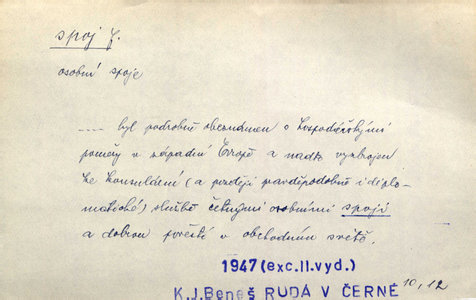 spoj f.
osobní spoje
.... byl podrobně obeznámen o hospodářskými
poměry v západní Evropě a nadto vyzbrojen
ke konsulární (a později pravděpodobně i diplo-
matické) službě četnými osobními spoji
a dobrou pověstí v obchodním světě.
1947 (exc. II. vyd.)
K.J. Beneš RUDÁ V ČERNÉ 10, 12